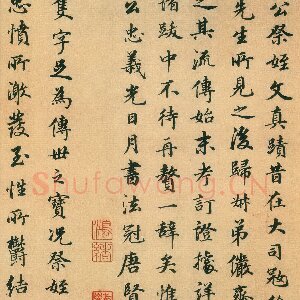 公祭姪文真蹟昔在大司寇
先生所見之後歸姒弟儼齋
之其流傳始末考訂證據詳
諸跋中不待再贅一辭矣惟
公忠義光日月書法冠唐賢
隻字足為傳世之寶況祭姪
忠憤所激發至性所鬱結
Shufawang.CN